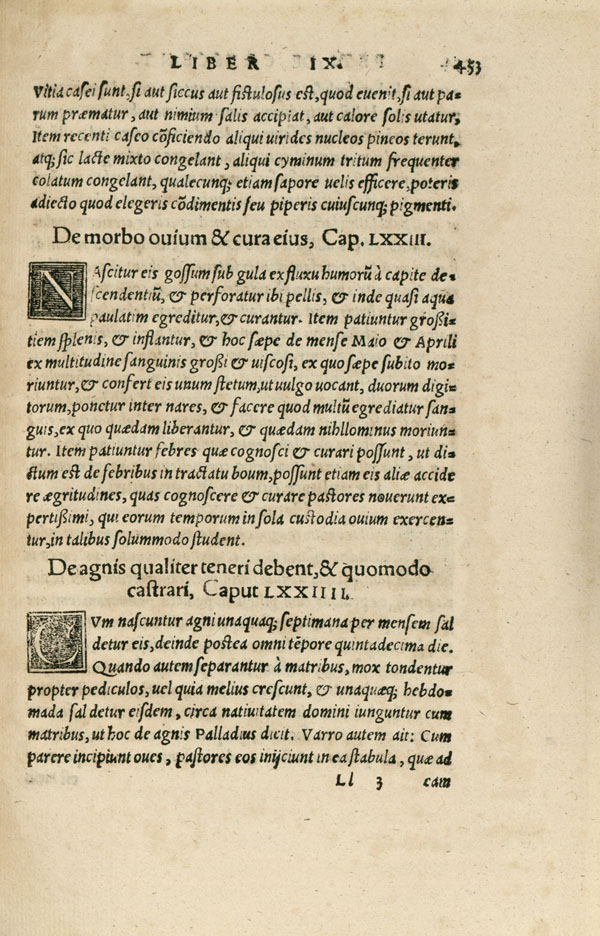 LIBER IX. 453
Vitia casei sunt, si aut siccus aut fistulosus est, quod euenit, si aut pa-
rum præmatur, aut nimium salis accipiat, aut calore solis utatur.
Item recenti caseo cõficiendo aliqui uirides nucleos pineos terunt,
atq; sic lacte mixto congelant, aliqui cyminum tritum frequenter
colatum congelant, qualecunq; etiam sapore uelis efficere, poteris
adiecto quod elegeris cõdimentis seu piperis cuiuscunq; pigmenti.
De morbo ouium & cura eius, Cap. LXXIII.
NAscitur eis gossum sub gula ex fluxu humorũ à capite de-
scendentiũ, & perforatur ibi pellis, & inde quasi aqua
paulatim egreditur, & curantur. Item patiuntur großi-
tiem splenis, & inflantur, & hoc sæpe de mense Maio & Aprili
ex multitudine sanguinis großi & uiscosi, ex quo sæpe subito mo-
riuntur, & confert eis unum stetum, ut uulgo uocant, duorum digi-
torum, ponctur inter nares, & facere quod multũ egrediatur san-
guis, ex quo quædam liberantur, & quædam nihllominus moriun-
tur. Item patiuntur febres quæ cognosci & curari possunt, ut di-
ctum est de febribus in tractatu boum, possunt etiam eis aliæ accide
re ægritudines, quas cognoscere & curare pastores nouerunt ex-
pertißimi, qui eorum temporum in sola custodia ouium exercen-
tur, in talibus solummodo student.
De agnis qualiter teneri debent, & quomodo
castrari, Caput LXXIIII.
CVm nascuntur agni unaquaq; septimana per mensem sal
detur eis, deinde postea omni tẽpore quintadecima die.
Quando autem separantur à matribus, mox tondentur
propter pediculos, uel quia melius crescunt, & unaquæq; hebdo-
mada sal detur eisdem, circa natiuitatem domini iunguntur cum
matribus, ut hoc de agnis Palladius dicit. Varro autem ait: Cum
parere incipiunt oues, pastores eos inijciunt in ea stabula, quæ ad
Ll 3 eam